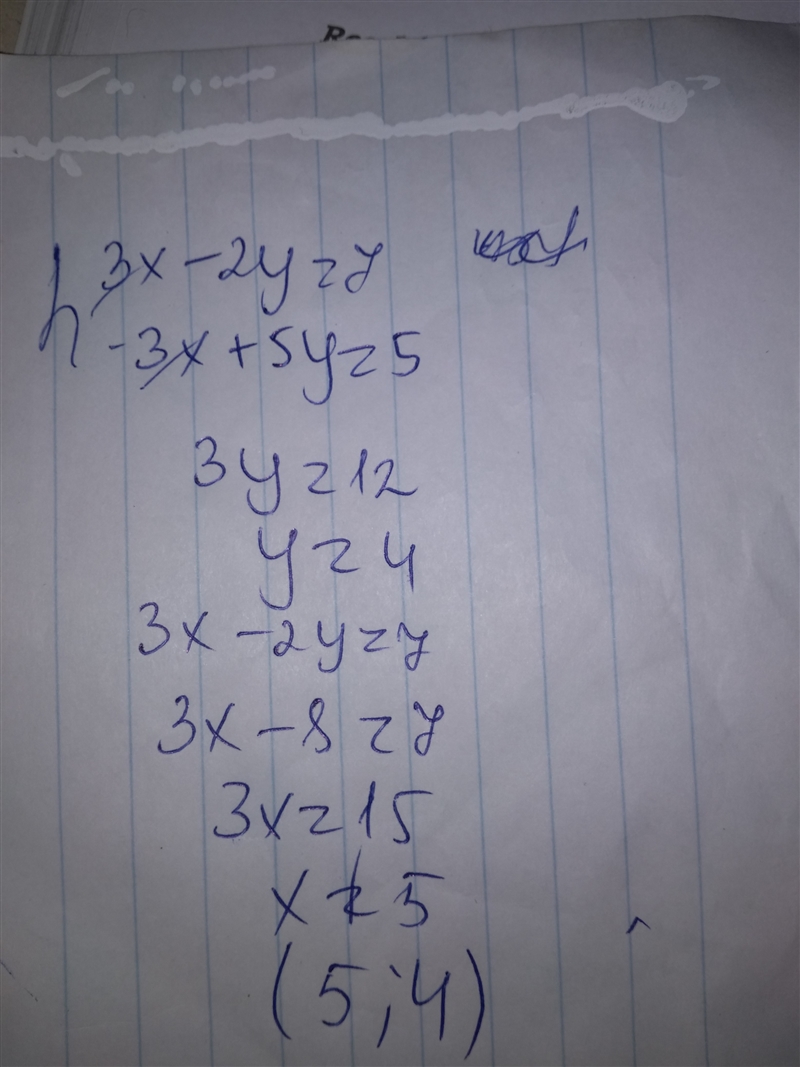 3x - 2y = 7
-3x + 5y = 5
3y = 12
y = 4
3x - 2y = 7
3x - 8 = 7
3x = 15
x = 5
(5; 4)